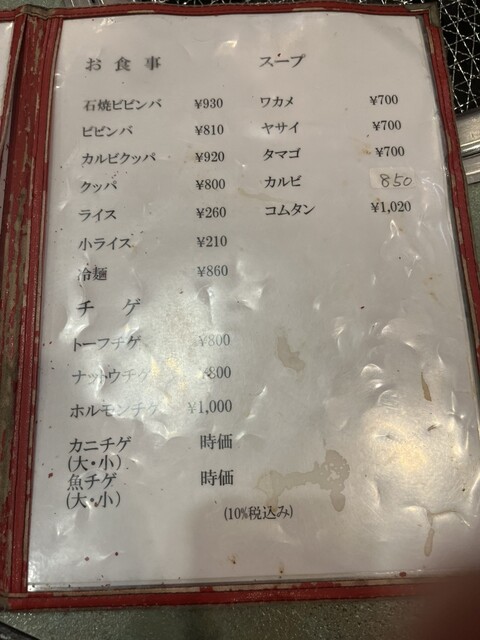 お食事
石焼ビビンバ ¥930
ビビンバ ¥810
カルビクッパ ¥920
クッパ ¥800
ライス ¥260
小ライス ¥210
冷麺 ¥860
チゲ
トーフチゲ ¥800
ナットウチゲ ¥800
ホルモンチゲ ¥1,000
カニチゲ 時価
(大・小)
魚チゲ 時価
(大・小)
スープ
ワカメ ¥700
ヤサイ ¥700
タマゴ ¥700
カルビ 850
コムタン ¥1,020
(10%税込み)